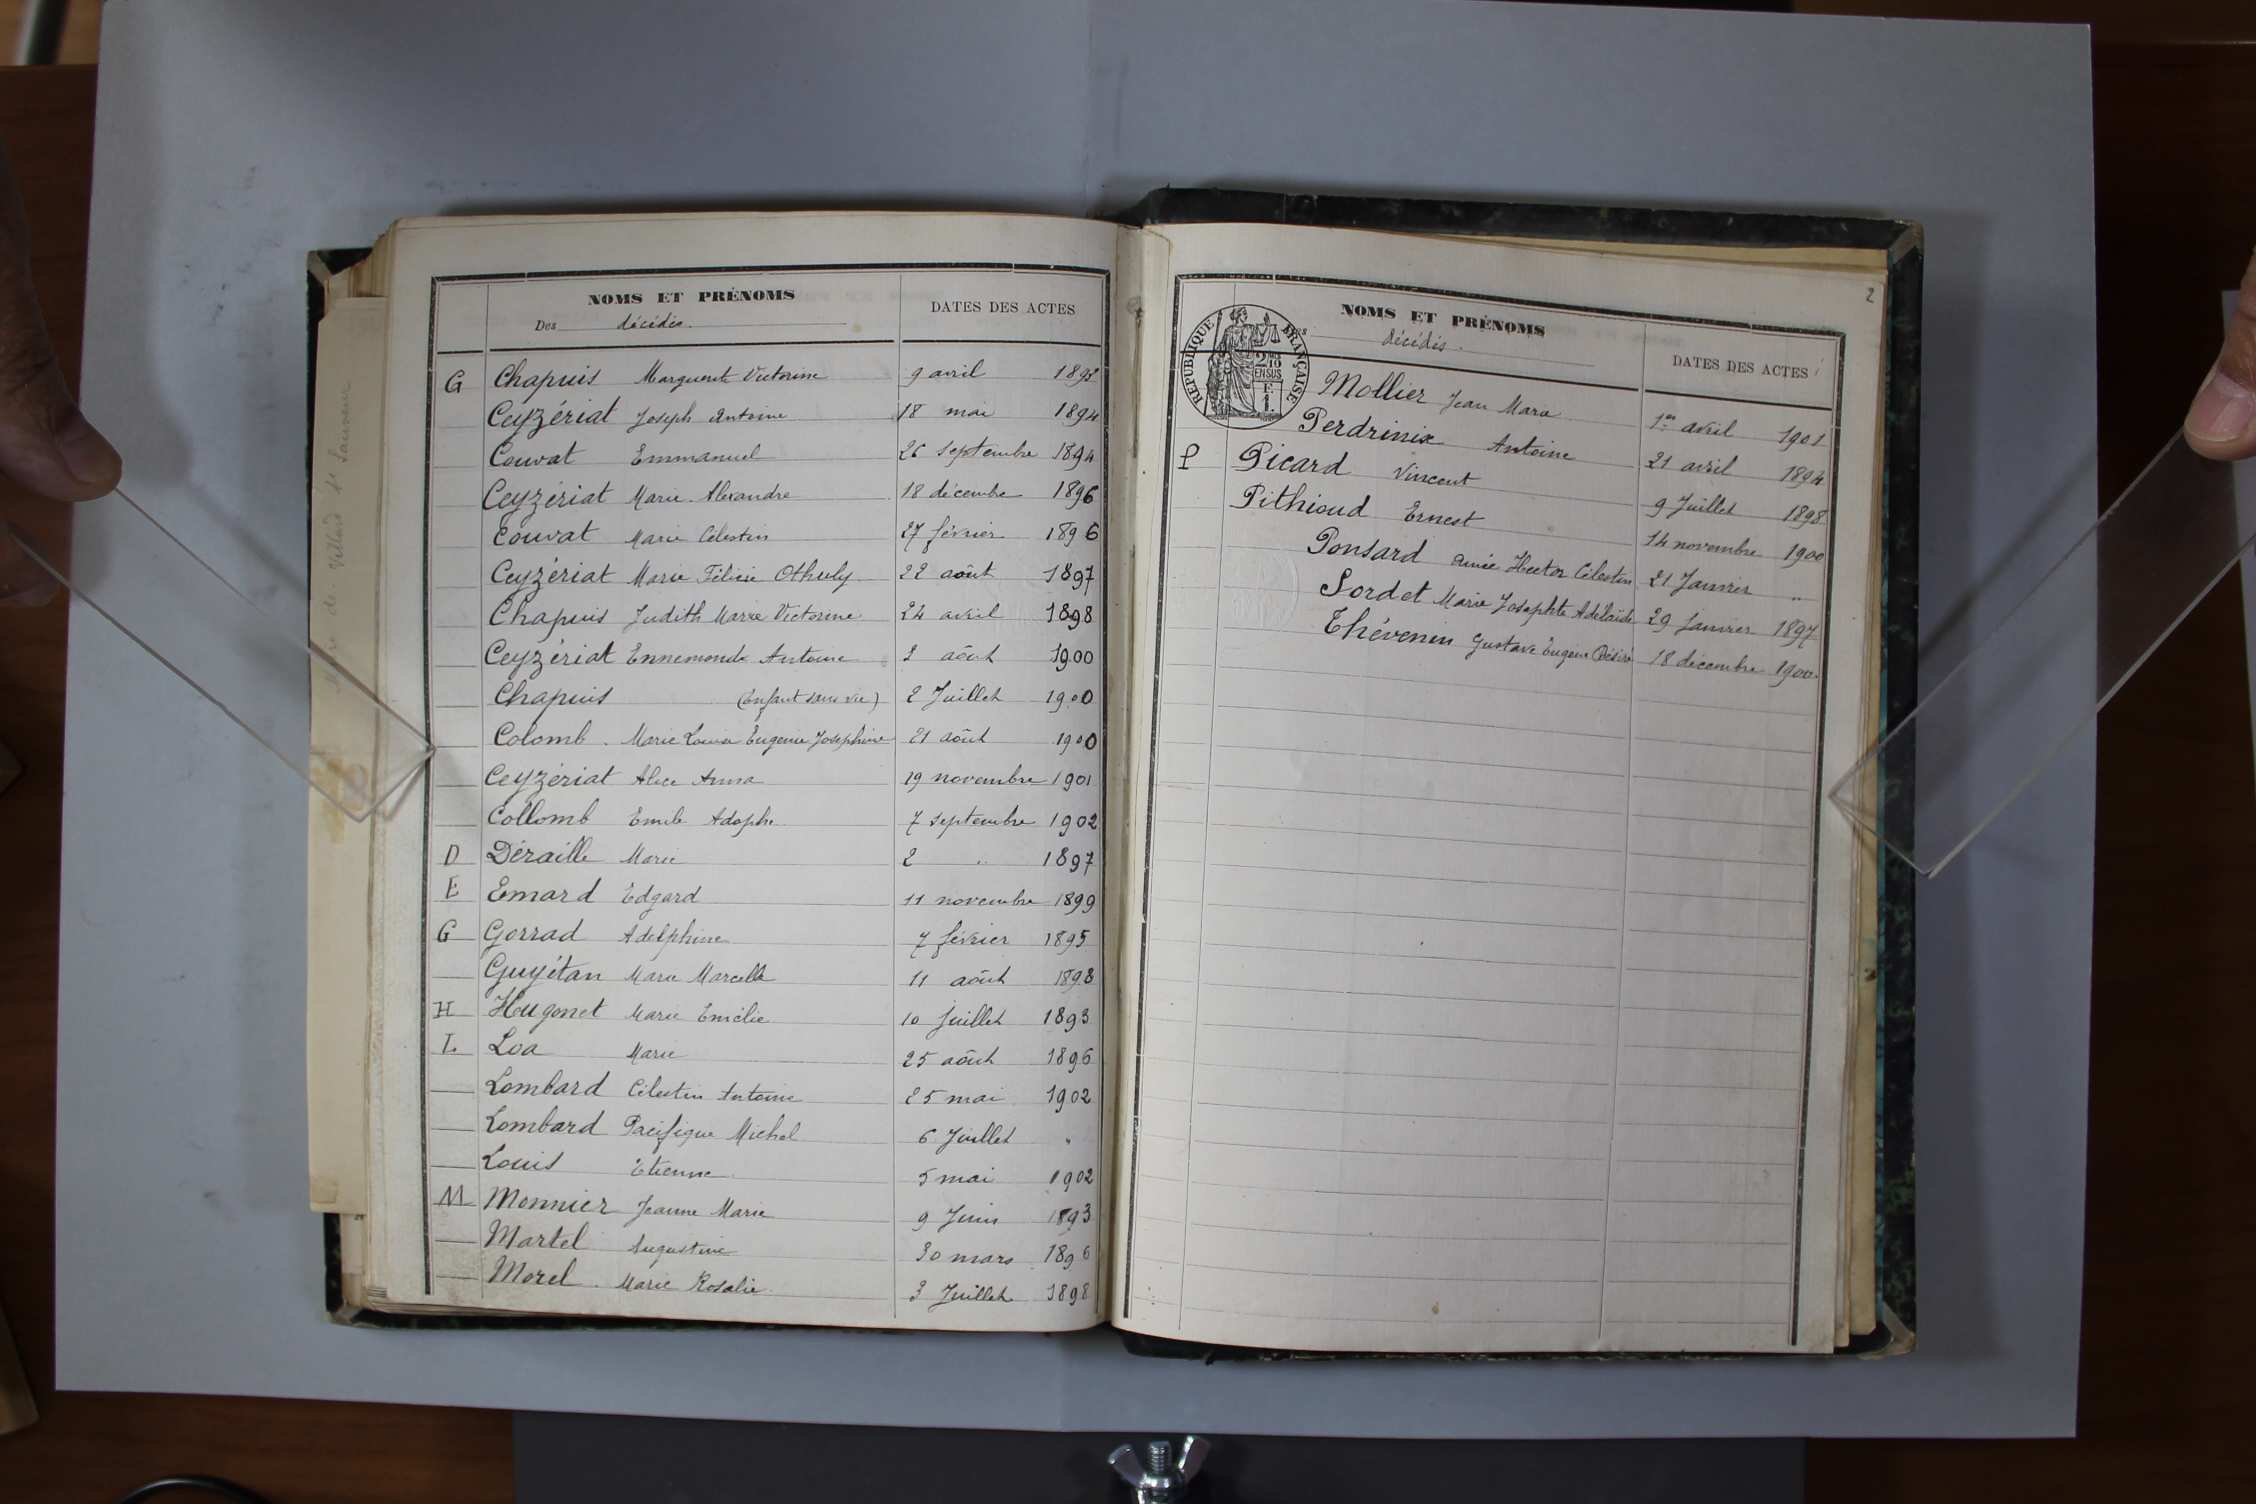 NOMS ET PRÉNOMS
Des décédés.
DATES DES ACTES
C Chapuis Marguerite Victorine 9 avril 1893
Ceyzériat Joseph Antoine 18 mai 1894
Couvat Emmanuel 26 septembre 1894
Ceyzériat Marie Alexandre 18 décembre 1896
Couvat Marie Célestin 27 février 1896
Ceyzériat Marie Félicie 22 août 1897
Chapuis Judith Marie Victorine 24 avril 1898
Ceyzériat Ennemonde Antoine août 1900
Chapuis (Enfant sans vie) 2 Juillet 1900
Colomb. Marie Louise Eugenie Joséphine 21 août 1900
Ceyzériat Alice Anna 19 novembre 1901
Collomb Emile Adophe 7 septembre 1902
D Déraille Marie 2 " 1897
E Emard Edgard 11 novembre 1899
G Gorrad Adelphine 7 février 1895
Guyétan Marie Marcelle 11 août 1898
H Hugonet Marie Emélie 10 Juillet 1893
L Loa Marie 25 août 1896
Lombard Célestin Antoine 25 mai 1902
Lombard Pacifique Michel 6 Juillet "
Louis Etienne 5 mai 1902
M Monnier Jeanne Marie 9 Juin 1893
Martel Augustine 30 mars 1896
Morel Marie Rosalie 3 Juillet 1898
2
NOMS ET PRÉNOMS
décédés.
DATES DES ACTES
RÉPUBLIQUE FRANÇAISE
2/10 EN SUS
Mollier Jean Marie 1er avril 1901
Perdrinix Antoine 21 avril 1894
P Picard Vincent 9 Juillet 1898
Pithioud Ernest 14 novembre 1900
Ponsard Aimée Hector Célestin 21 Janvier "
Sordet Marie Josephte Adélaïde 29 Janvier 1897
Thévenin Gustave Eugène Désiré 18 décembre 1900